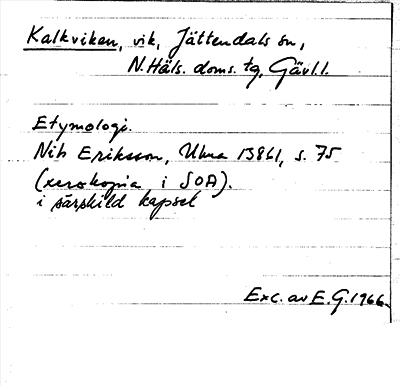 Kalkviken, vik, Jättendals sn,
N. Häls. doms. tg, Gävl. l.
Etymologi.
Nils Eriksson, Ulua 13861, s. 75
(xerokopia i SOA).
i särskild kapsel
Exc. av E. G. 1966.